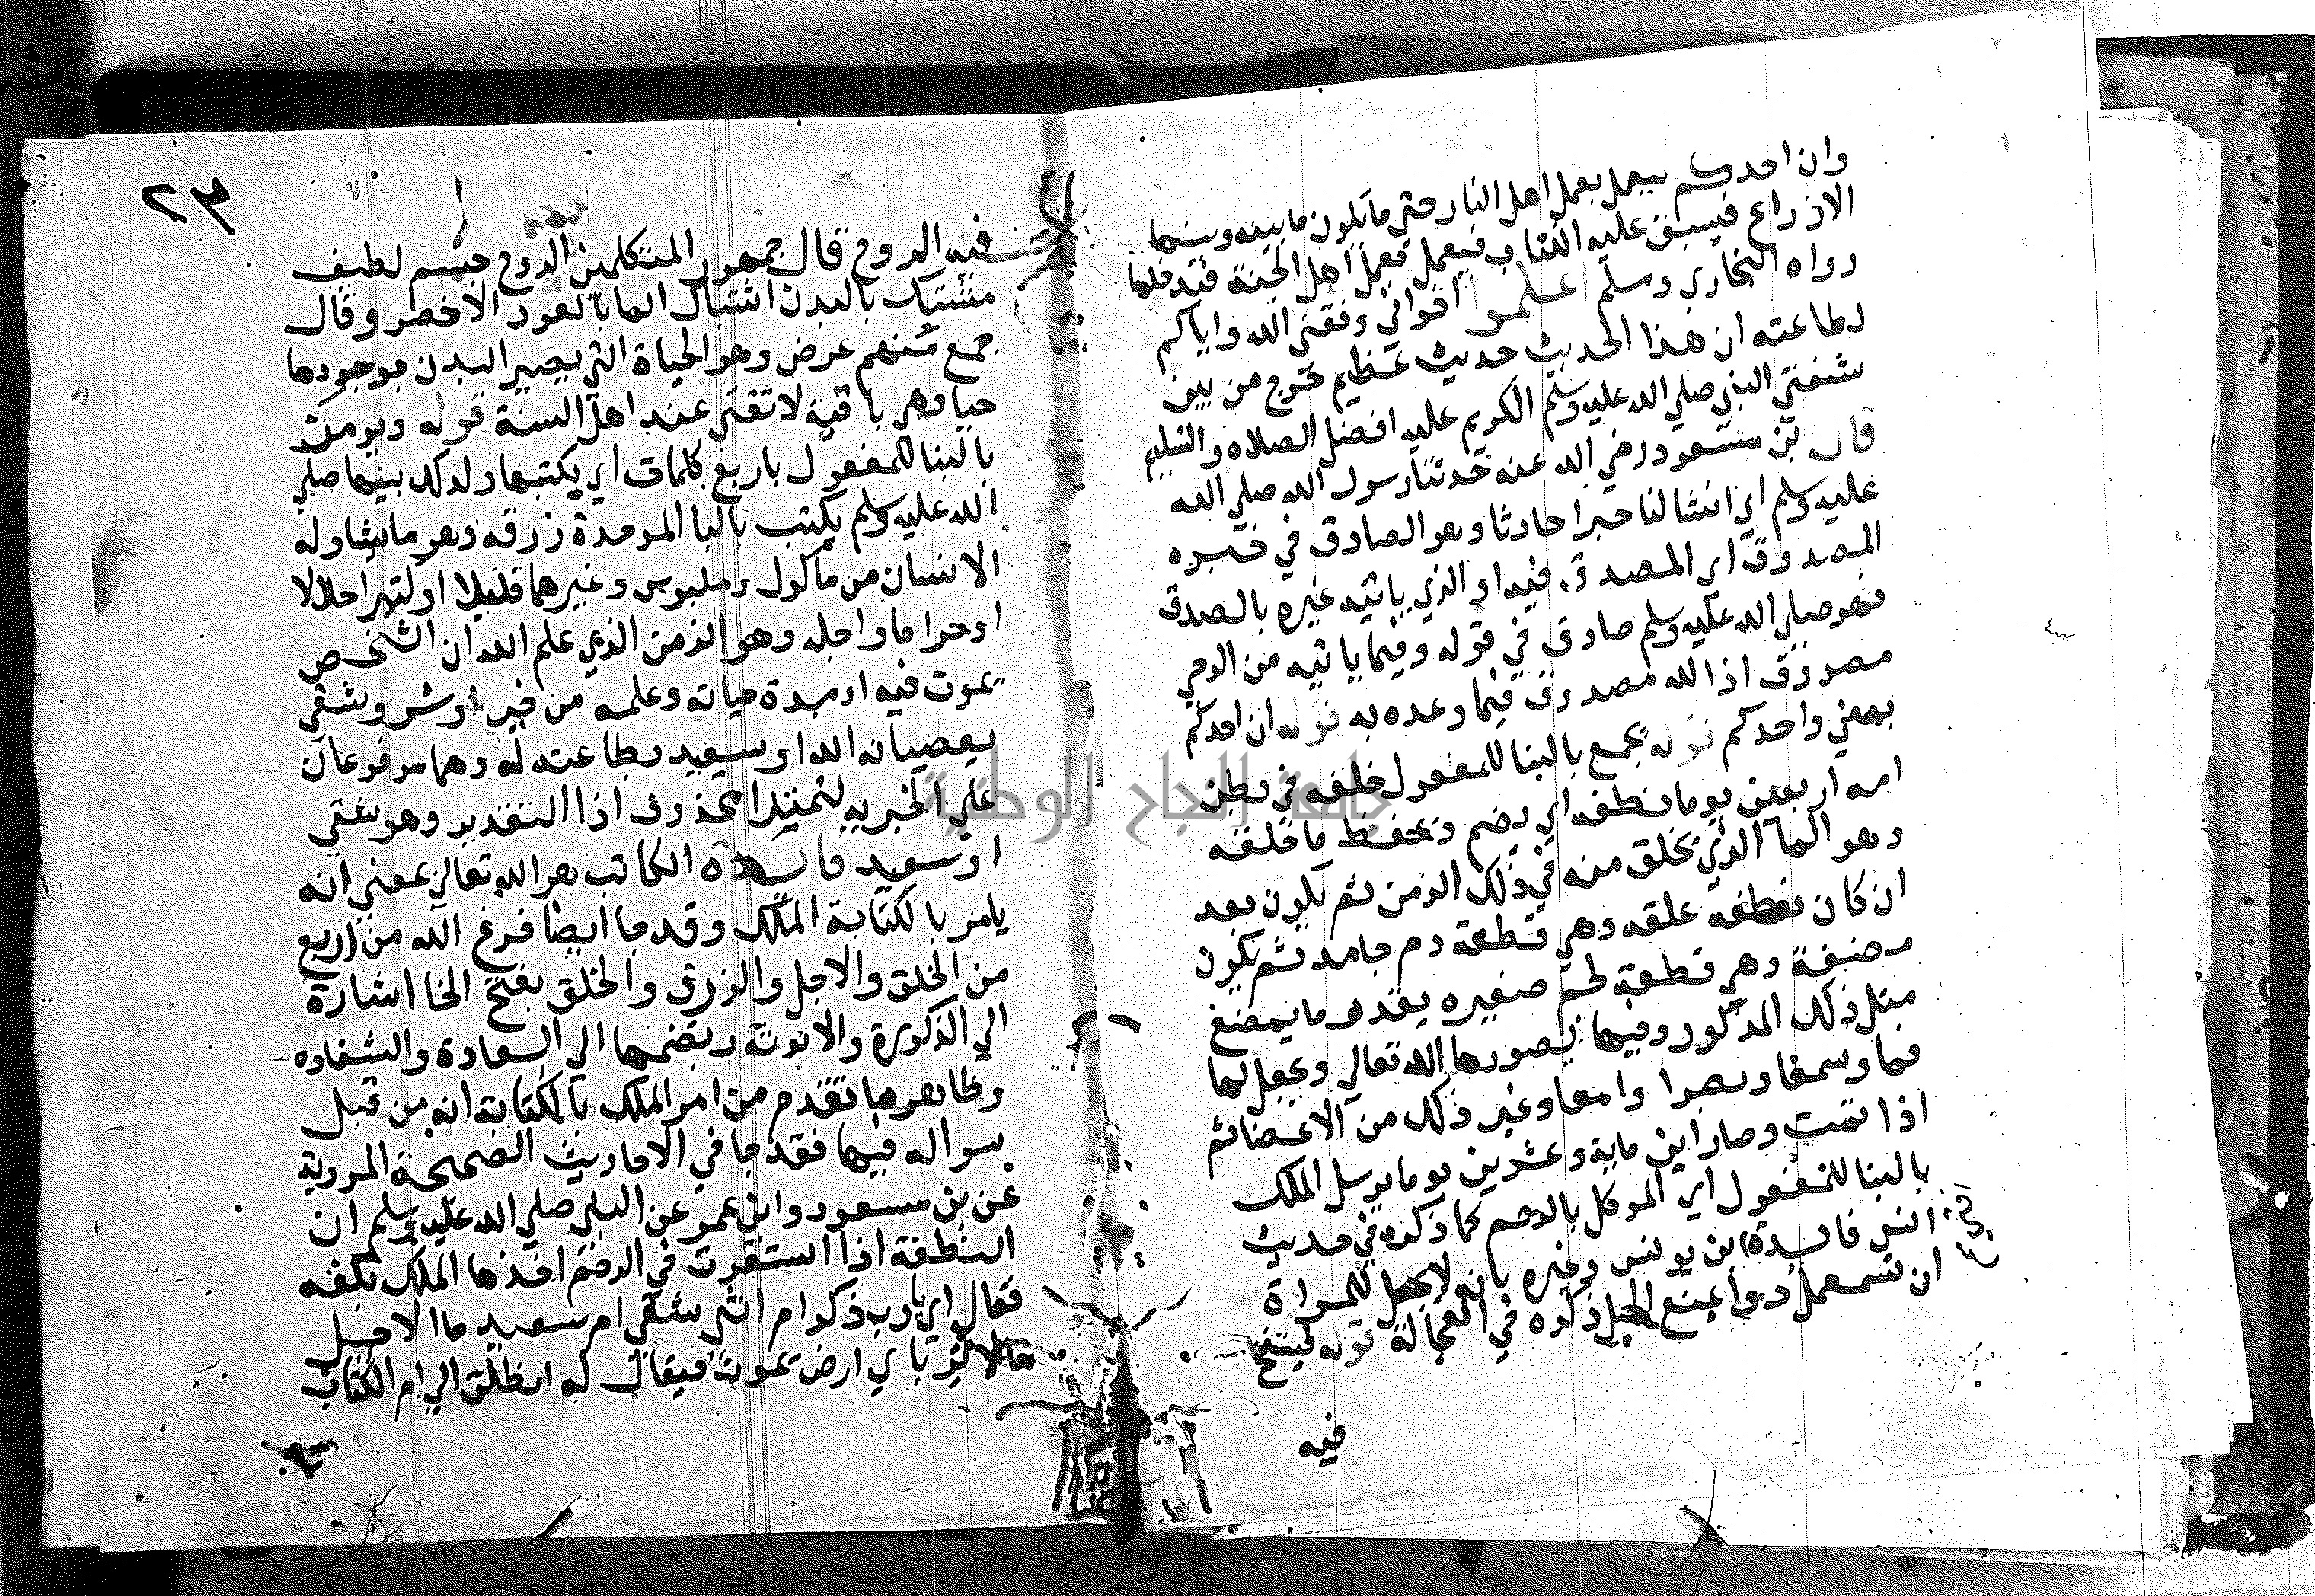 وان احدكم ليعمل بعمل اهل النار حتي ما يكون ما بينه وبينها
الاذراع فيسبق عليه الكتاب فيعمل بعمل اهل الجنة فيدخلها
رواه البخاري ومسلم اعلموا اخواني وفقني الله واياكم
لطاعته ان هذا الحديث حديث عظيم خرج من بين
شفتي النبي صلي الله عليه وسلم الكريم عليه افضل الصلاه والتسليم
قال بن مسعود رضي الله عنه حدثنا رسول الله صلي الله
عليه وسلم اي انشا لنا خبرا حادثا وهو الصادق في خبره
المصدوق اي المصدق فيه او الذي ياتيه غيره بالصدق
فهو صلي الله عليه وسلم صادق في قوله وفيما ياتيه من الوحي
مصدوق اذ الله مصدوق فيما وعده به قوله ان احدكم
بمعني واحدكم قوله يجمع بالبنا للمفعول خلقه في بطن
امه اربعين يوما نطفه اي يضم ويحفظ ما خلقه
وهو الما الذي يخلق منه في ذلك الزمن ثم يكون بعد
ان كان نطفه علقه وهي قطعة دم جامد ثم يكون
مضغة وهي قطعة لحم صغيره بقدر ما يمضغ
مثل ذلك المذكور وفيها يصورها الله تعالي ويجعل لها
فما وسمعا وبصرا وامعا وغير ذلك من الاعضا ثم
اذا تمت وصار ابن ماية وعشرين يوما يرسل الملك
بالبنا للمفعول اي الموكل بالرحم كما ذكره في حديث
انس فايدة بن يونس وغيره بانه لا يحل للمراة
ان تستعمل دوا يمنع الحبل ذكره في العجالة قوله فينفخ
فيه
٢٣
فيه الروح قال جمهور المتكلمين الروح جسم لطيف
مشتبك بالبدن اشتباك الما بالعود الاخضر وقال
جمع منهم عرض وهو الحياة التي يصير البدن بوجودها
حيا وهي باقية لا تفني عند اهل السنة قوله ويومر
بالبنا للمفعول باربع كلمات اي يكتبها ولذلك بينها صلي
الله عليه وسلم يكتب بالبا الموحدة رزقه وهو ما يتناوله
الانسان من ماكول وملبوس وغيرهما قليلا او كثيرا حلالا
او حراما واجله وهو الزمن الذي علم الله ان الشخص
يموت فيه او مدة حياته وعلمه من خير او شر وشقي
بعصيانه الله او سعيد بطاعته له وهما مرفوعان
علي الخبريه لمبتدا محذوف اذا التقدير وهو شقي
او سعيد فايدة الكاتب هو الله تعالي بمعني انه
يامر بالكتابة الملك وقد جا ايضا فرغ الله من اربع
من الخلق والاجل والرزق والخلق بفتح الخا اشارة
الي الذكورة والانوثة وبضمها الي السعادة والشقاوه
وظاهر ما تقدم من امر الملك بالكتابة انه من قبل
سواله فيها فقد جا في الاحاديث الصحيحة المروية
عن بن مسعود وابن عمر عن النبي صلي الله عليه وسلم ان
النطفة اذا استقرت في الرحم اخذها الملك بكفه
فقال اي يارب ذكر ام انثي شقي ام سعيد ما الاجل
ما الاثر باي ارض تموت فيقال له انطلق الي ام الكتاب
جامعة النجاح الوطنية